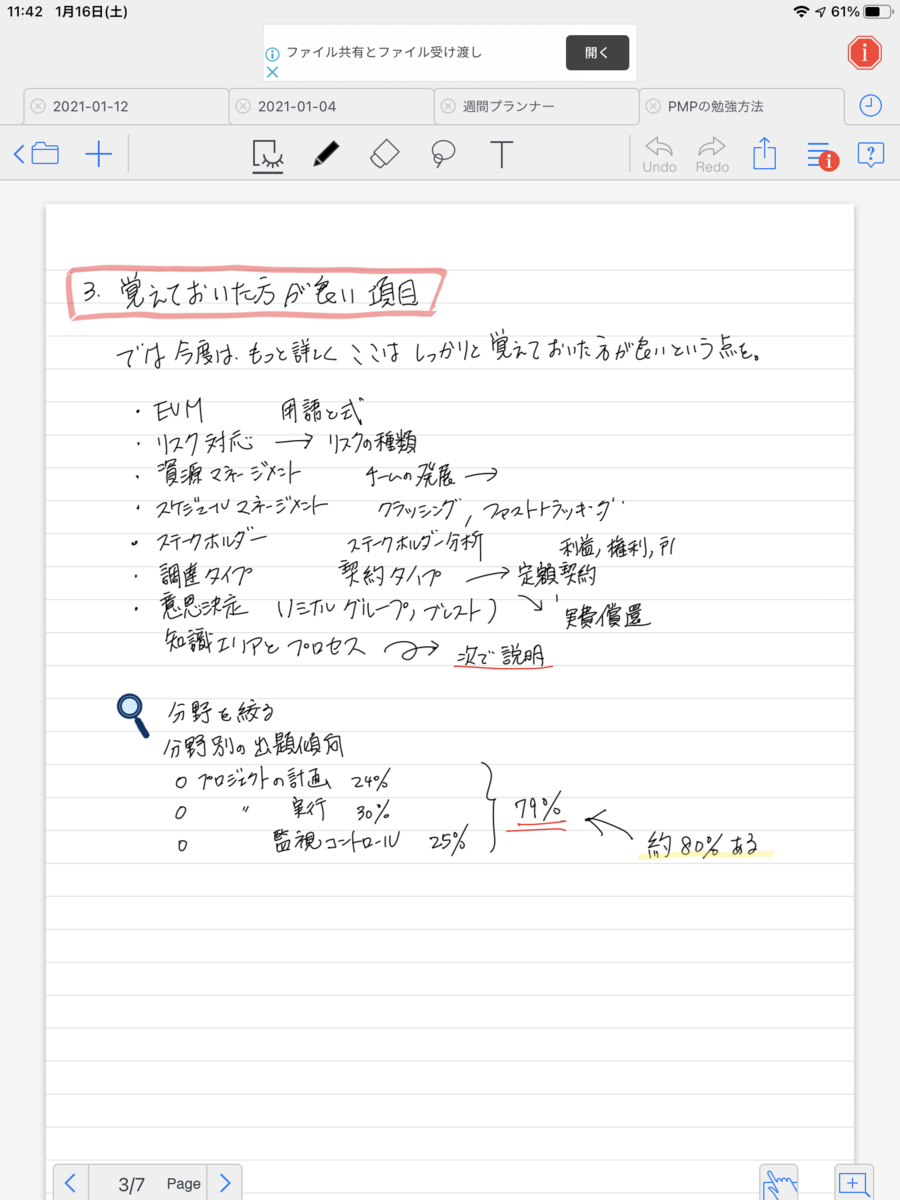 11:42 1月16日(土) 61%
ファイル共有とファイル受け渡し 開く
2021-01-12 2021-01-04 週間プランナー PMPの勉強方法
T Undo Redo
3. 覚えておいた方が良い項目
では今度は、もっと詳しくここはしっかりと覚えておいた方が良いという点を。
・EVM 用語と式
・リスク対応 → リスクの種類
・資源マネージメント チームの発展 →
・スケジュールマネージメント クラッシング, ファストトラッキング
・ステークホルダー ステークホルダー分析 利益, 権利,
・調達タイプ 契約タイプ → 定額契約
・意思決定 (ノミナルグループ, ブレスト) 実費償還
知識エリアとプロセス → 次で説明
分野を絞る
分野別の出題傾向
○ プロジェクトの計画 24%
○ 〃 実行 30% 79%
○ 監視コントロール 25% 約80%ある
3/7 Page